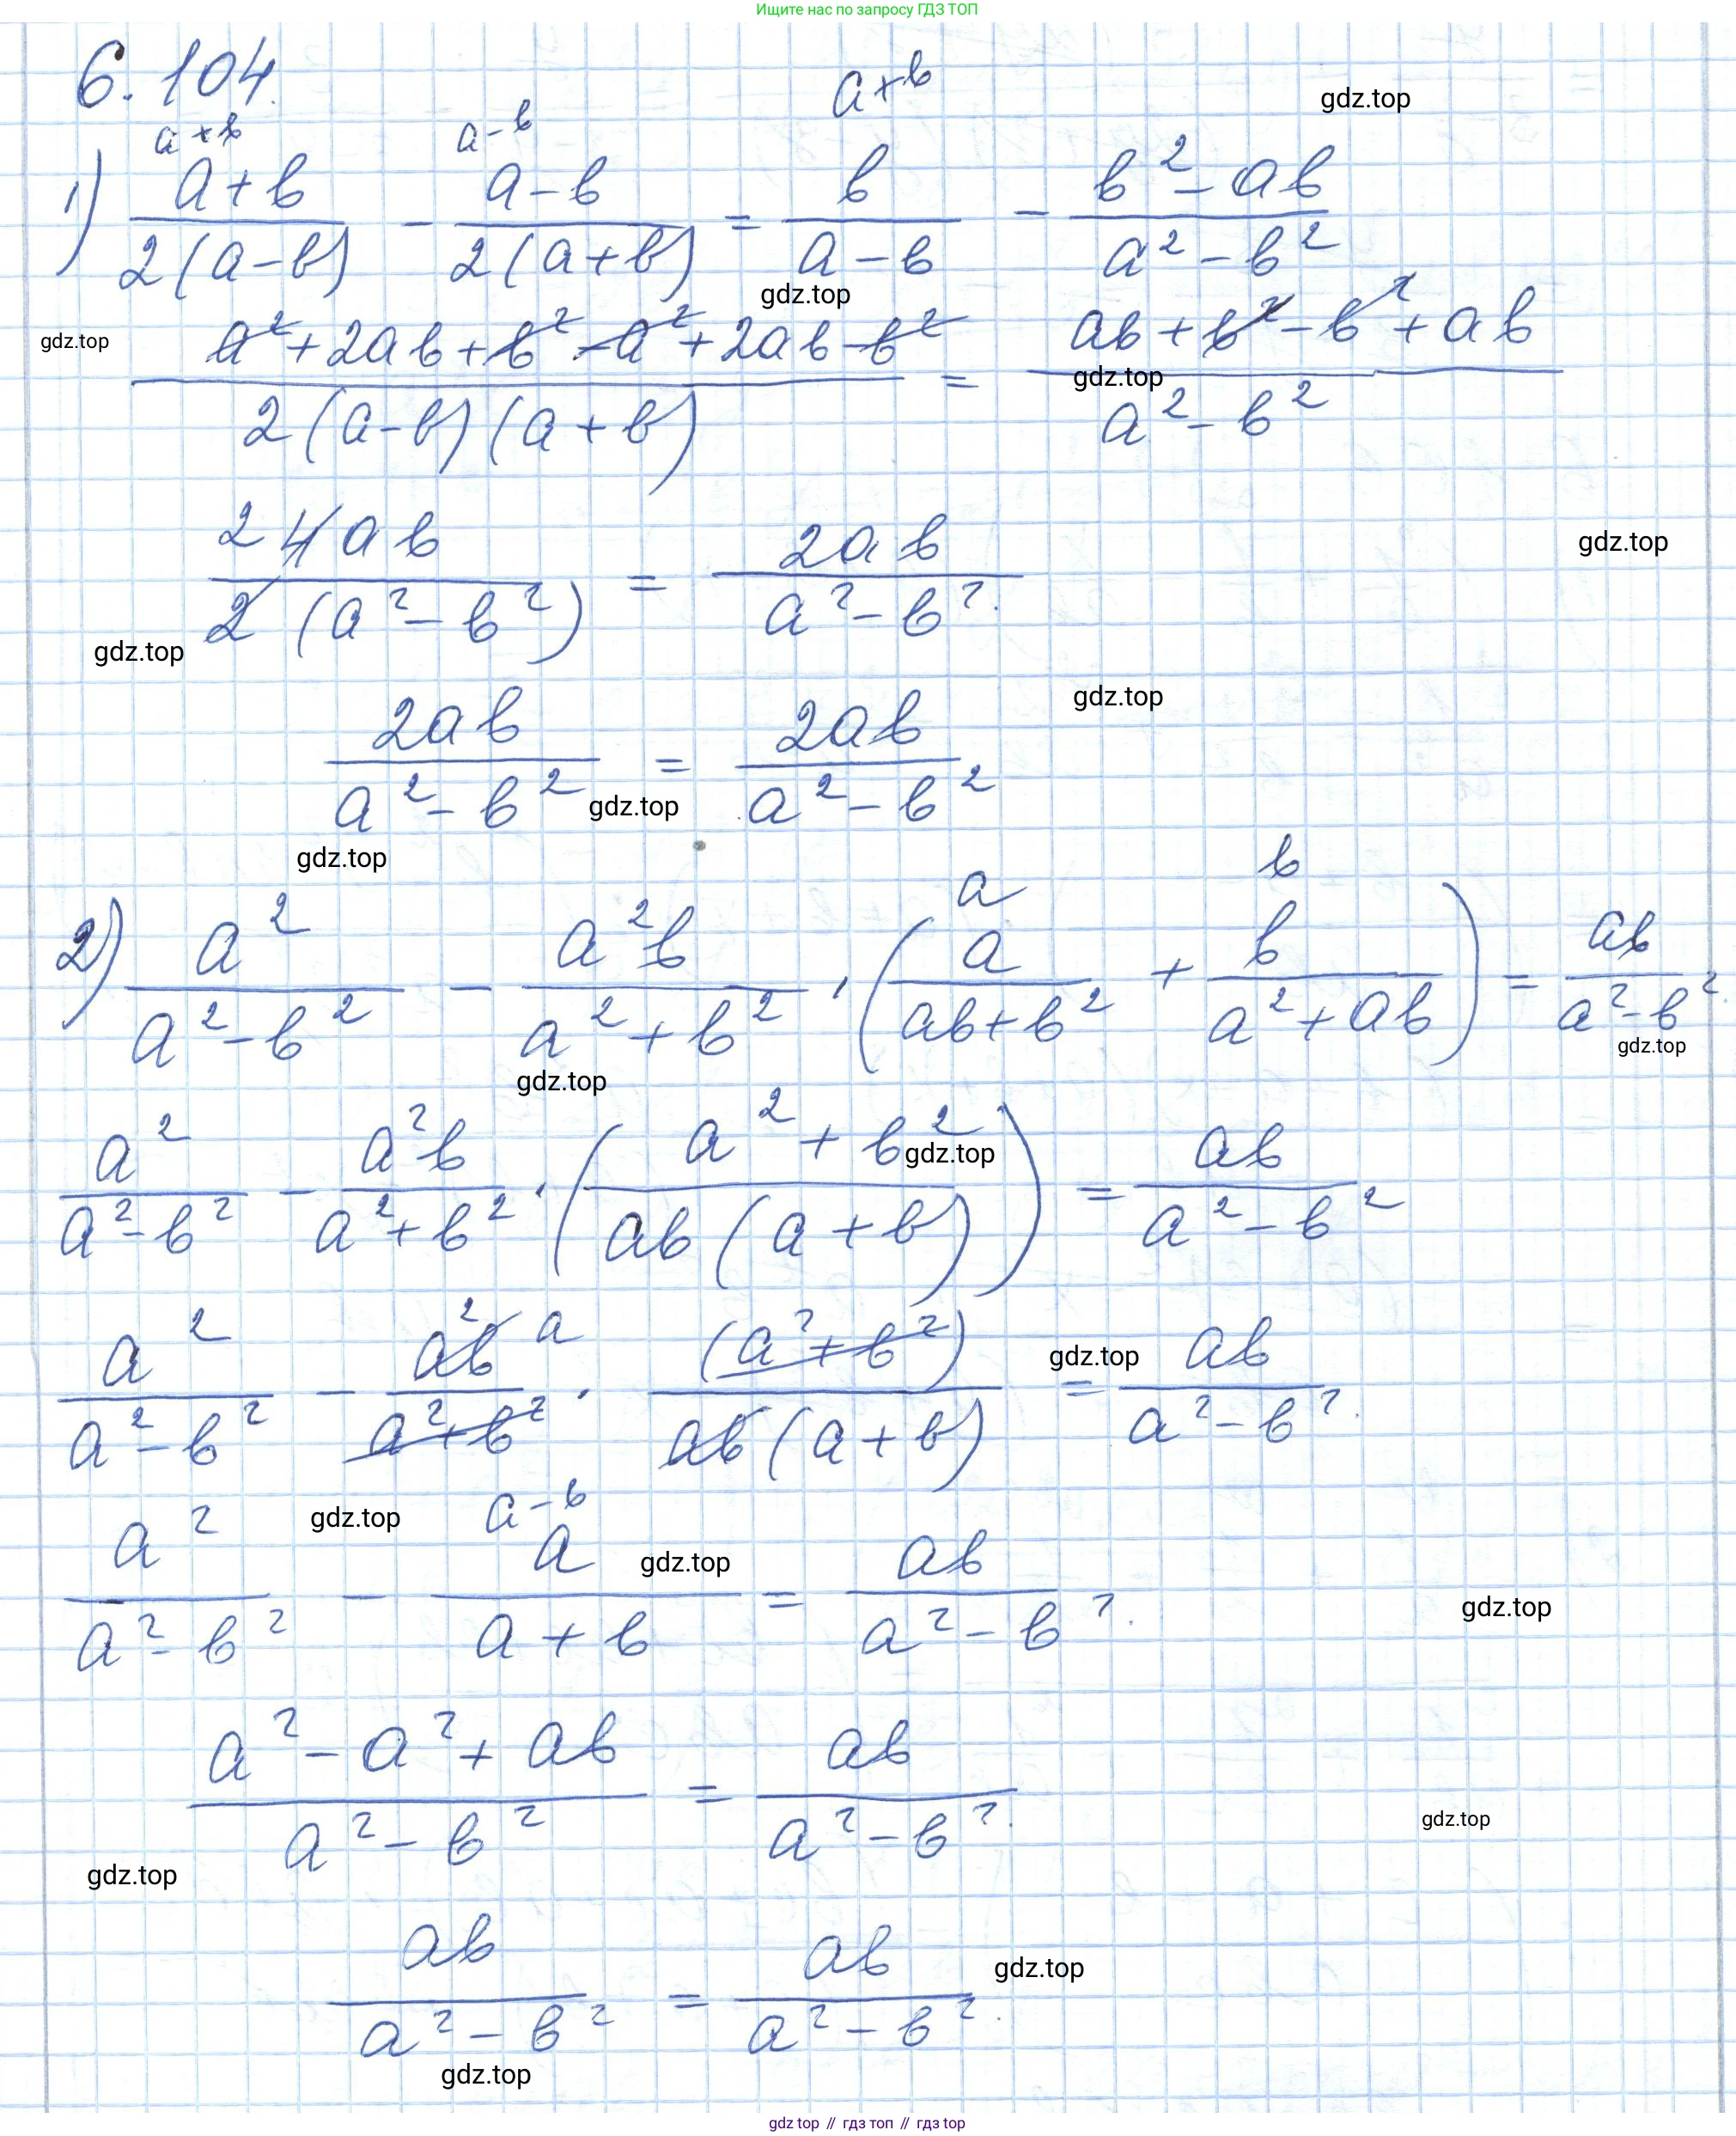 Ищите нас по запросу ГДЗ ТОП
6.104.
gdz.top
a+b a-b a+b
1) (a+b)/(2(a-b)) - (a-b)/(2(a+b)) = b/(a-b) - (b²-ab)/(a²-b²)
gdz.top
gdz.top
(a²+2ab+b²-a²+2ab-b²)/(2(a-b)(a+b)) = (ab+b²-b²+ab)/(a²-b²)
gdz.top
2 4ab/(2(a²-b²)) = 2ab/(a²-b²).
gdz.top
gdz.top
2ab/(a²-b²) = 2ab/(a²-b²)
gdz.top
gdz.top
gdz.top
a b
2) a²/(a²-b²) - a²b/(a²+b²) · (a/(ab+b²) + b/(a²+ab)) = ab/(a²-b²).
gdz.top
gdz.top
a²/(a²-b²) - a²b/(a²+b²) · ((a²+b²)/(ab(a+b))) = ab/(a²-b²)
gdz.top
a²/(a²-b²) - a²b a/(a²+b²) · (a²+b²)/(ab(a+b)) = ab/(a²-b²).
gdz.top
gdz.top
a-b
a²/(a²-b²) - a/(a+b) = ab/(a²-b²).
gdz.top
gdz.top
(a²-a²+ab)/(a²-b²) = ab/(a²-b²).
gdz.top
gdz.top
ab/(a²-b²) = ab/(a²-b²).
gdz.top
gdz.top
gdz top // гдз топ // gdz top